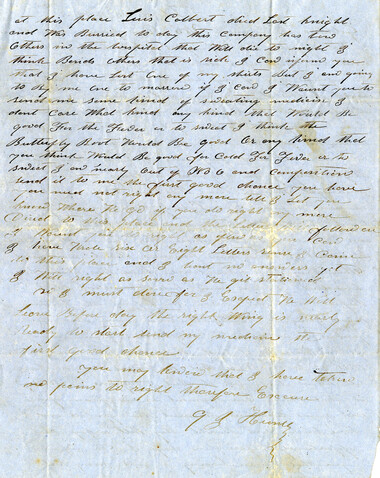 at this place Luis Colbert died Last knight
and Was Burried to day this Company has two
Others in the hospital that Will die to night I
think Bends others that is sick I Can inform you
that I have lost one of my shirts But I am going
to try me one to morrow if I Can I Waunt you to
send me some kind of sweating medicine I
dont Care What kind any kind that Would Be
good For the Fever or to sweat I think the
Butterfly Root Would Be good Or any kind that
you think Would Be good for Cold For Fever or to
sweat I am nearly out of No 6 and Composition
send it to me the first good chance you have
you need not right any more till I Let you
know Where to go if you do right any more
Direct to this place and the Letter follow
it Waunt as far as
I have Wrote six or Eight Letters since I Came
to this place and I have no answer yet
I Will right as soon as We get stationed
so I must close for I Expect We Will
Leave Before day the right Wing is nearly
Ready to start send my medicine the
first good chance
you may know that I have taken
no pains to right therefore Excuse